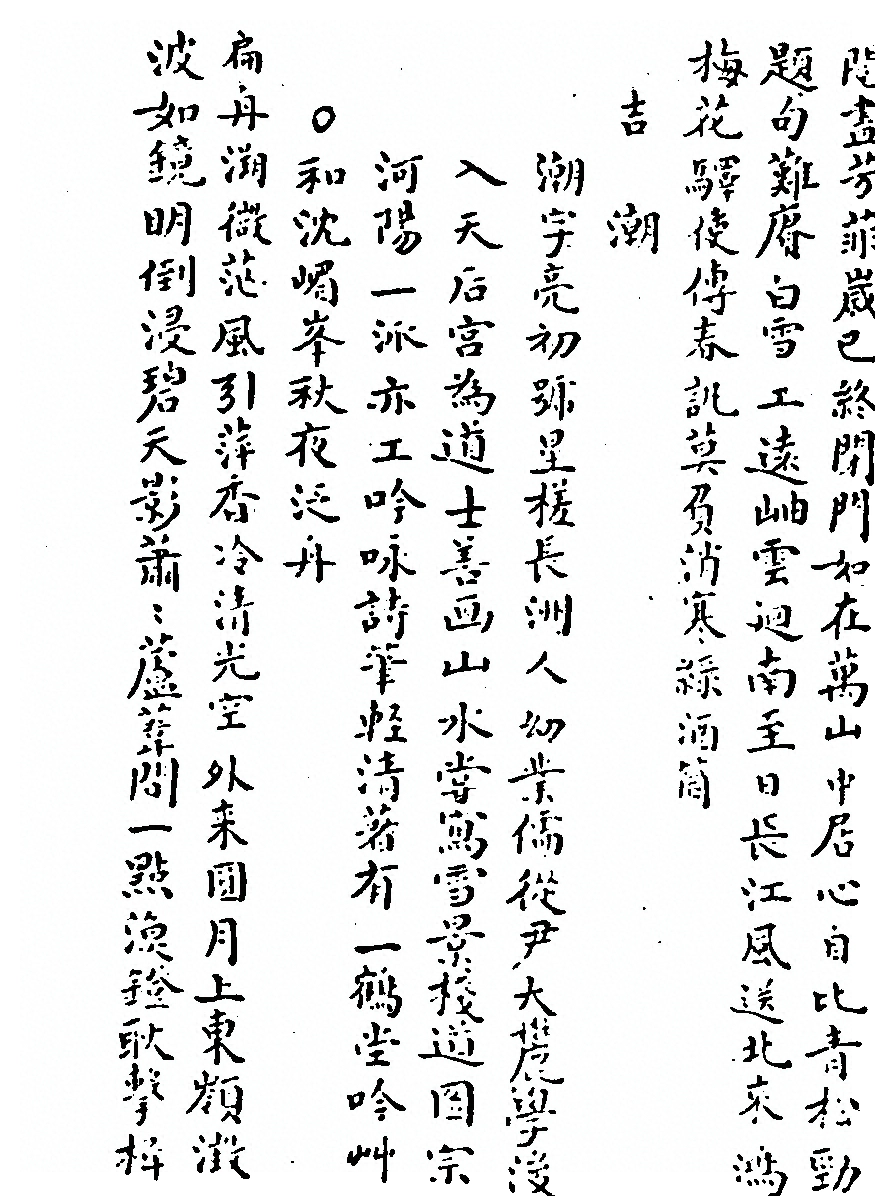 閱盡芳菲歲已終閉門如在萬山中居心自比青松勁
題句難賡白雪工遠岫雲迴南至日長江風送北來鴻
梅花驛使傳春訊莫負消寒綠酒筩
吉潮
潮字亮初號星槎長洲人幼業儒從尹大麓學後
入天后宮為道士善画山水嘗寫雪景棧道圖宗
河陽一派亦工吟咏詩筆輕清著有一鶴堂吟艸
○和沈嵋峯秋夜泛舟
扁舟溯微茫風引萍香冷清光空外來圓月上東嶺澂
波如鏡明倒浸碧天影蕭〻蘆葦間一點漁鐙耿擊榜